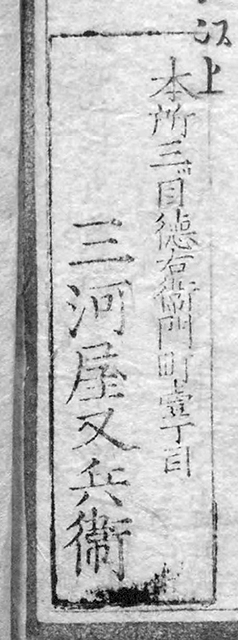 江上
本所三ツ目徳右衛門町壹丁目
三河屋又兵衛